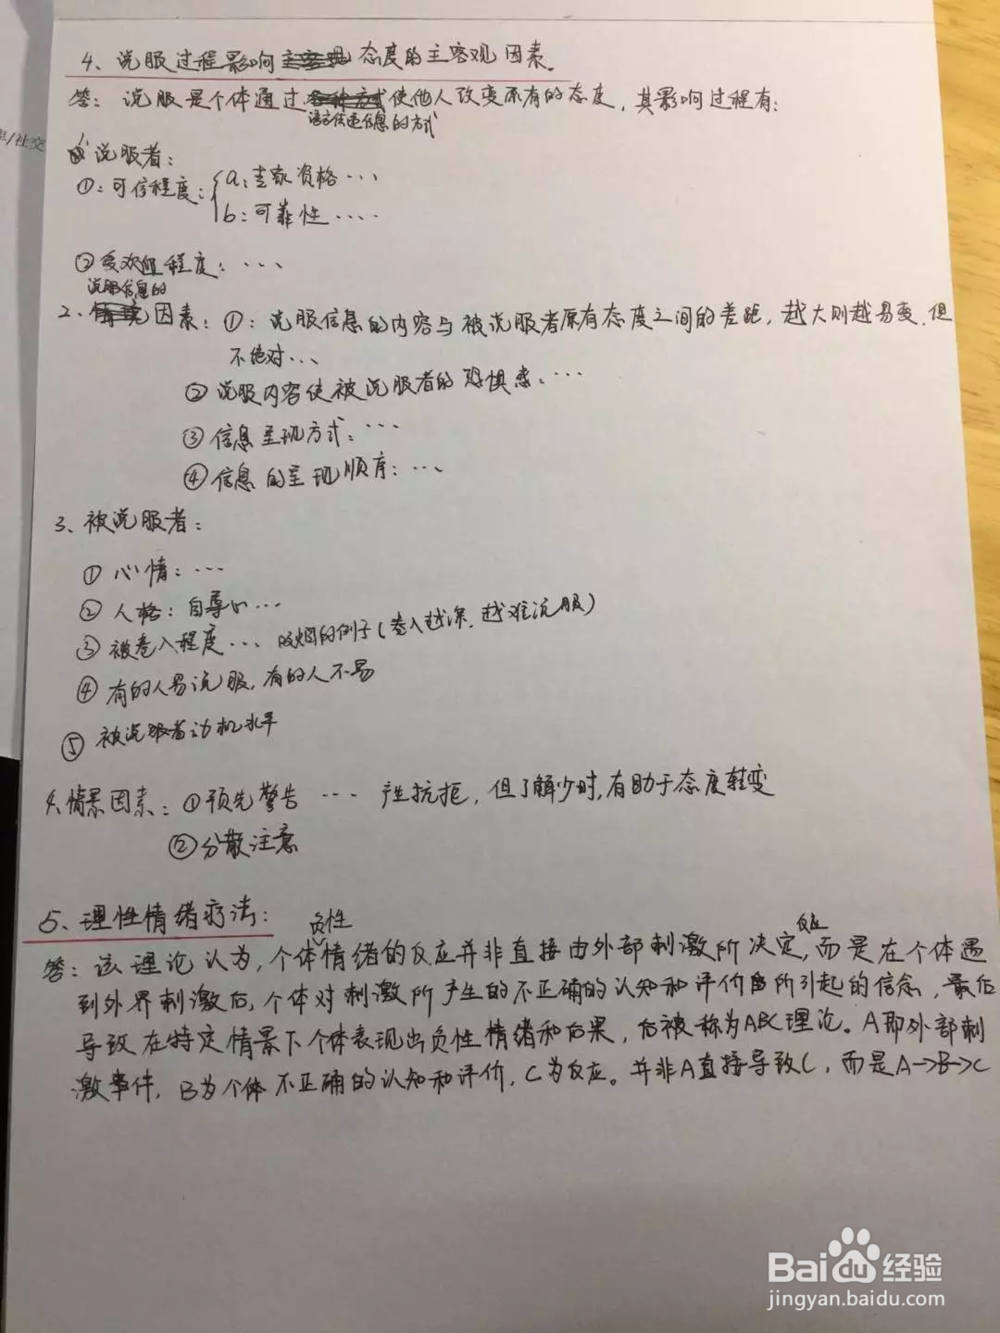 4、说服过程影响态度的主客观因素。
答：说服是个体通过使他人改变原有的态度，其影响过程有：
语言传递信息的方式
/社交
说服者：
①：可信程度：{a：专家资格…
b：可靠性….
②受欢迎程度：…
说服信息的
2、因素：①：说服信息的内容与被说服者原有态度之间的差距，越大则越易变，但
不绝对…
②说服内容使被说服者的恐惧感：…
③信息呈现方式：…
④信息的呈现顺序：…
3、被说服者：
①心情：…
②人格：自尊心…
③被卷入程度…吸烟的例子(卷入越深，越难说服)
④有的人易说服，有的人不易
⑤被说服者动机水平
4、情景因素：①预先警告…产生抗拒，但了解少时，有助于态度转变
②分散注意
5、理性情绪疗法：
负性
反应
答：该理论认为，个体情绪的反应并非直接由外部刺激所决定，而是在个体遇
到外界刺激后，个体对刺激所产生的不正确的认知和评价所引起的信念，最后
导致在特定情景下个体表现出负性情绪和后果，后被称为ABC理论。A即外部刺
激事件，B为个体不正确的认知和评价，C为反应。并非A直接导致C，而是A→B→C
Baidu经验
jingyan.baidu.com